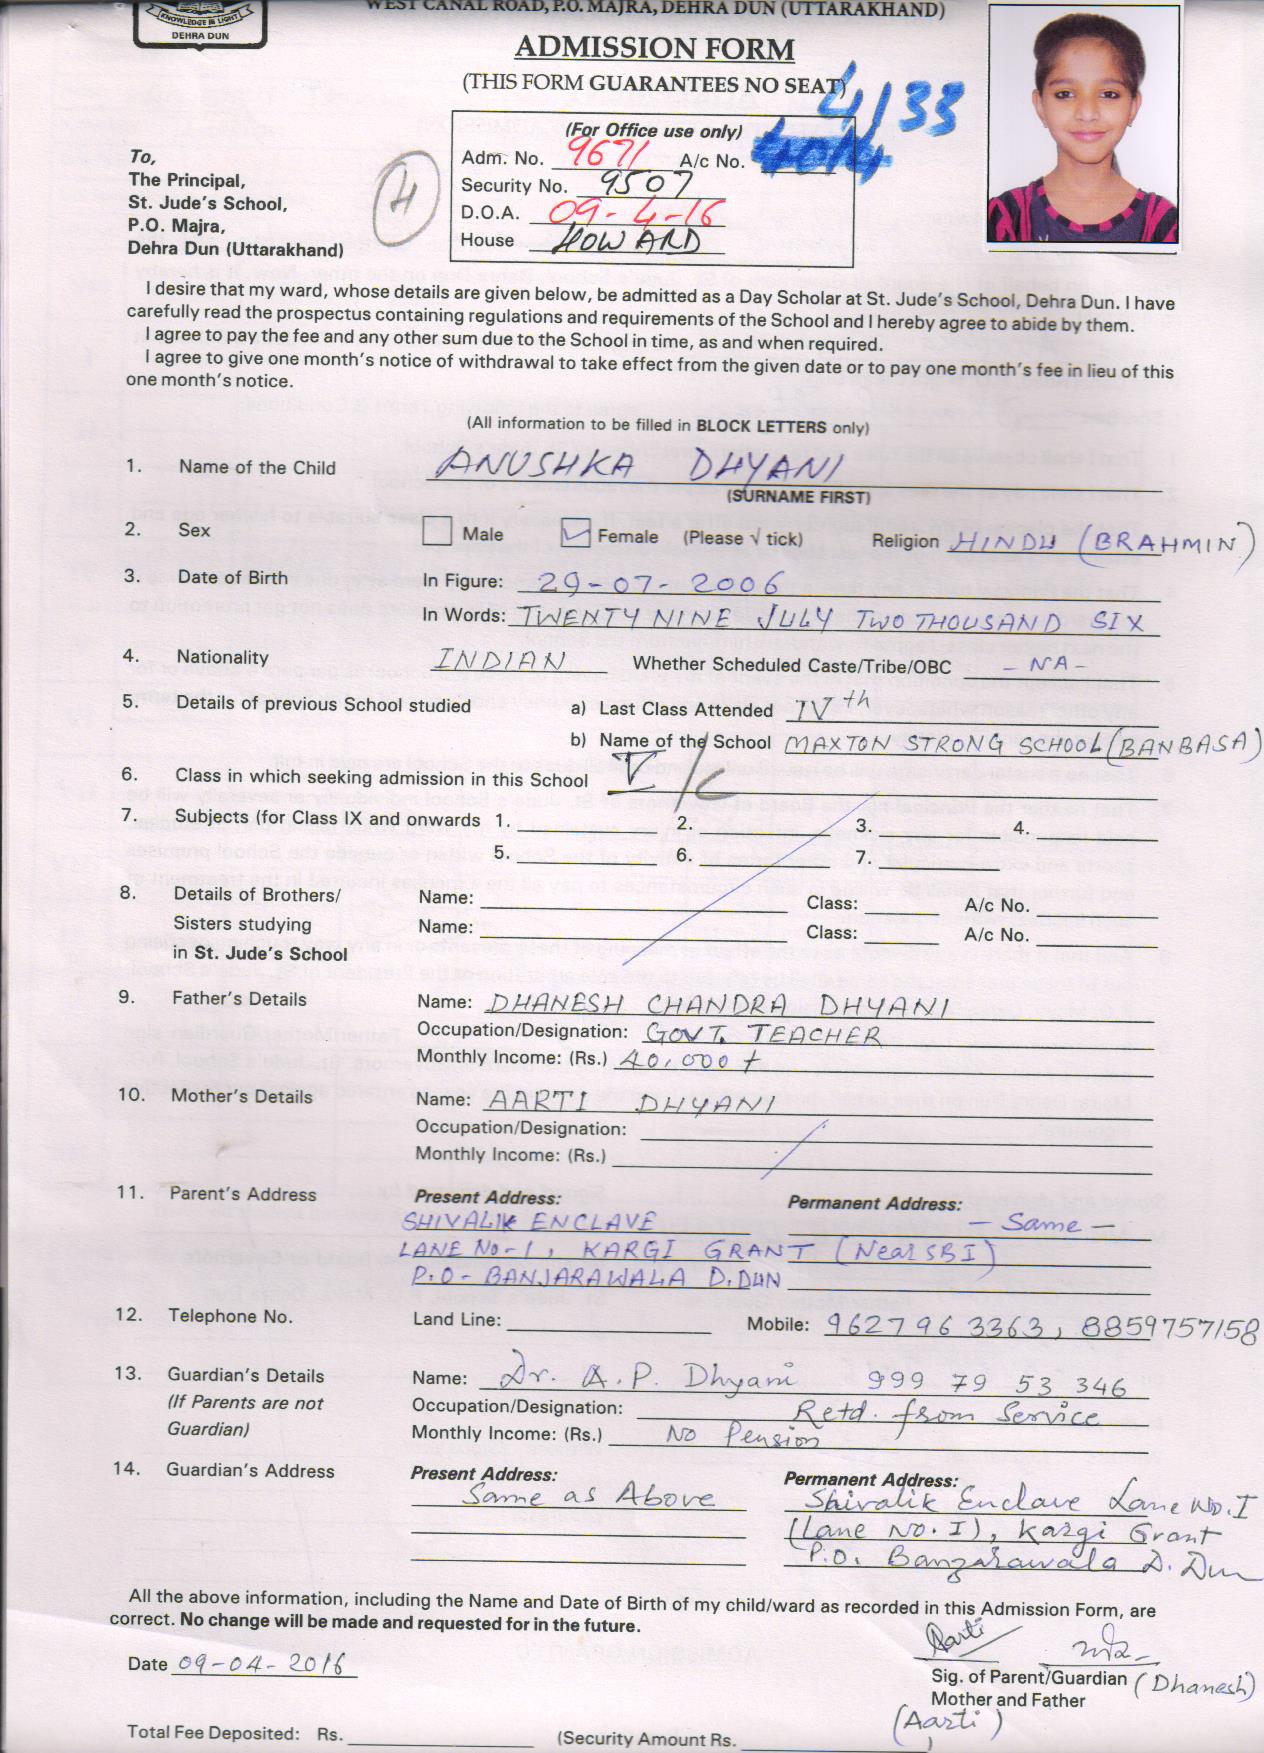 WEST CANAL ROAD, P.O. MAJRA, DEHRA DUN (UTTARAKHAND)
KNOWLEDGE IS LIGHT
DEHRA DUN
ADMISSION FORM
(THIS FORM GUARANTEES NO SEAT)
4/33
(For Office use only)
Adm. No. 9671 A/c No.
Security No. 9507
D.O.A. 09-4-16
House HOWARD
4
To,
The Principal,
St. Jude's School,
P.O. Majra,
Dehra Dun (Uttarakhand)
I desire that my ward, whose details are given below, be admitted as a Day Scholar at St. Jude's School, Dehra Dun. I have
carefully read the prospectus containing regulations and requirements of the School and I hereby agree to abide by them.
I agree to pay the fee and any other sum due to the School in time, as and when required.
I agree to give one month's notice of withdrawal to take effect from the given date or to pay one month's fee in lieu of this
one month's notice.
(All information to be filled in BLOCK LETTERS only)
1. Name of the Child ANUSHKA DHYANI
(SURNAME FIRST)
2. Sex Male Female (Please √ tick) Religion HINDU (BRAHMIN)
3. Date of Birth In Figure: 29-07-2006
In Words: TWENTY NINE JULY TWO THOUSAND SIX
4. Nationality INDIAN Whether Scheduled Caste/Tribe/OBC - NA -
5. Details of previous School studied a) Last Class Attended IVth
b) Name of the School MAXTON STRONG SCHOOL (BANBASA)
6. Class in which seeking admission in this School V/C
7. Subjects (for Class IX and onwards 1. 2. 3. 4.
5. 6. 7.
8. Details of Brothers/ Name: Class: A/c No.
Sisters studying Name: Class: A/c No.
in St. Jude's School
9. Father's Details Name: DHANESH CHANDRA DHYANI
Occupation/Designation: GOVT. TEACHER
Monthly Income: (Rs.) 40,000 +
10. Mother's Details Name: AARTI DHYANI
Occupation/Designation:
Monthly Income: (Rs.)
11. Parent's Address Present Address: Permanent Address:
SHIVALIK ENCLAVE - Same -
LANE No-1, KARGI GRANT (Near SBI)
P.O- BANJARAWALA D.DUN
12. Telephone No. Land Line: Mobile: 9627963363, 8859757158
13. Guardian's Details Name: Dr. A.P. Dhyani 999 79 53 346
(If Parents are not Occupation/Designation: Retd. from Service
Guardian) Monthly Income: (Rs.) No Pension
14. Guardian's Address Present Address: Permanent Address:
Same as Above Shivalik Enclave Lane No. I
(Lane No. I), Kargi Grant
P.O. Banzarawala D. Dun
All the above information, including the Name and Date of Birth of my child/ward as recorded in this Admission Form, are
correct. No change will be made and requested for in the future.
Aarti
Date 09-04-2016
Sig. of Parent/Guardian (Dhanesh)
Mother and Father
(Aarti)
Total Fee Deposited: Rs. (Security Amount Rs. )